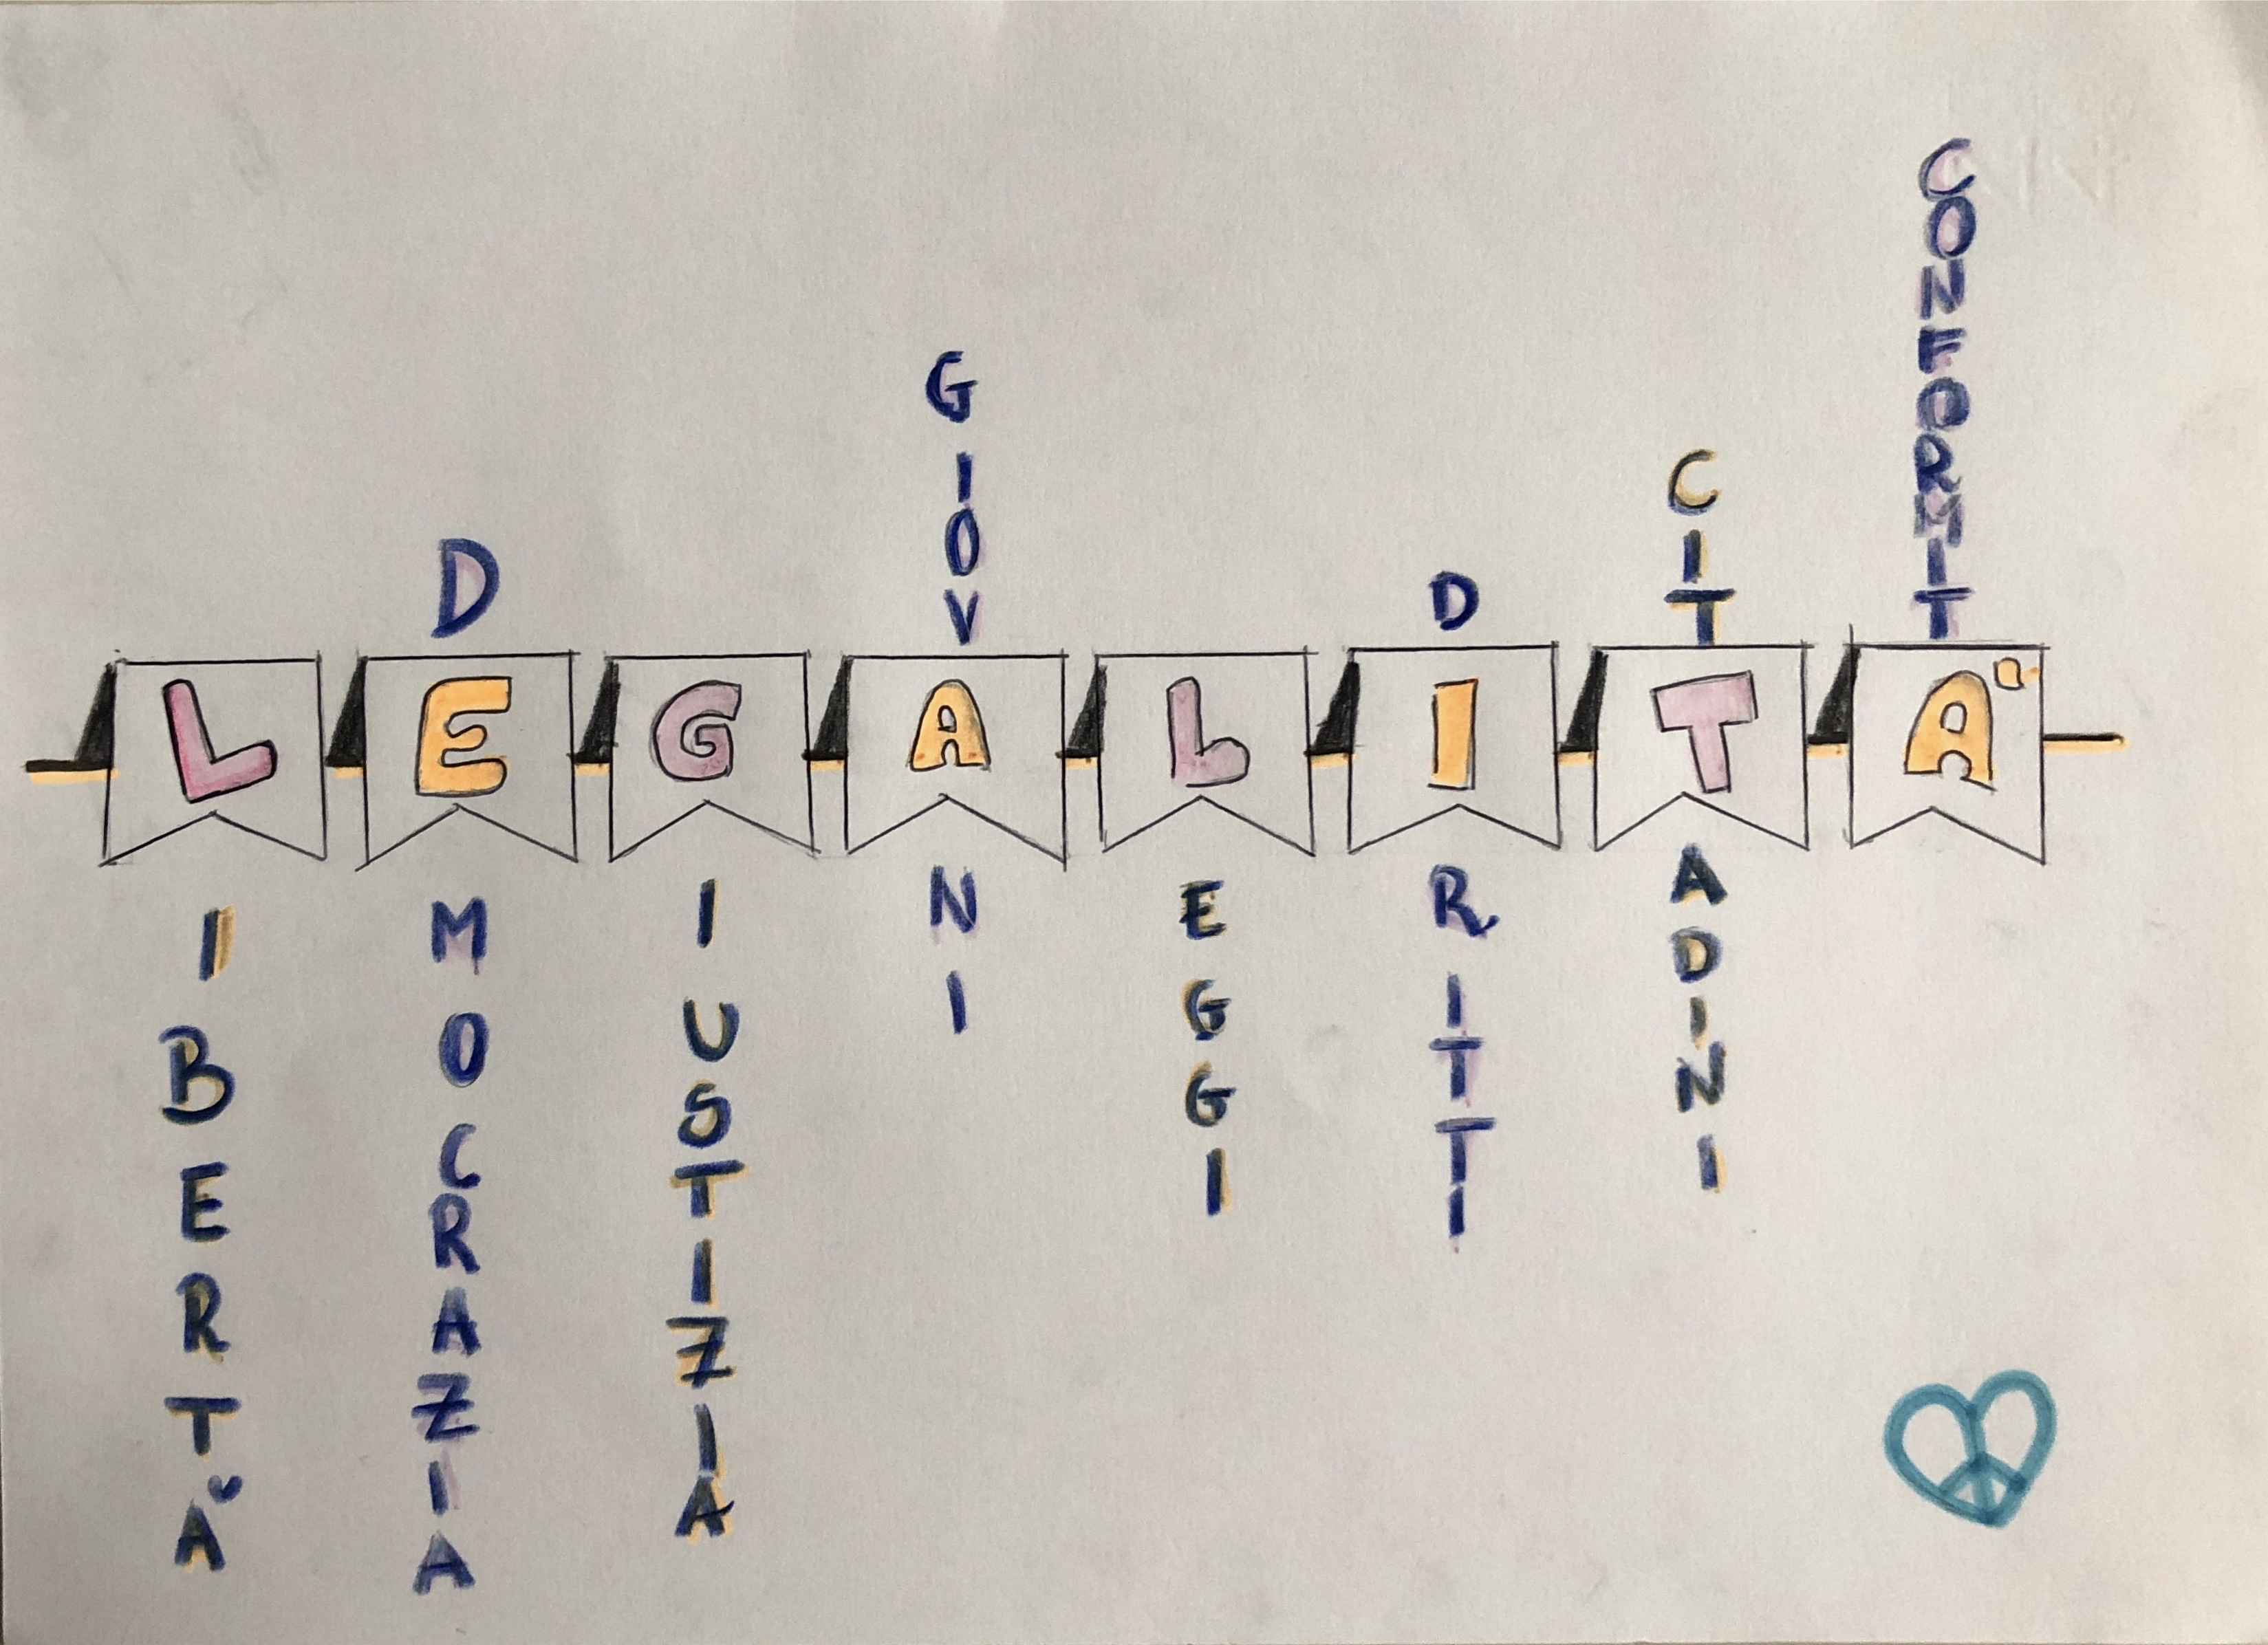 LEGALITÀ
LIBERTÀ
DEMOCRAZIA
GIUSTIZIA
GIOVANI
LEGGI
DIRITTI
CITTADINI
CONFORMITÀ